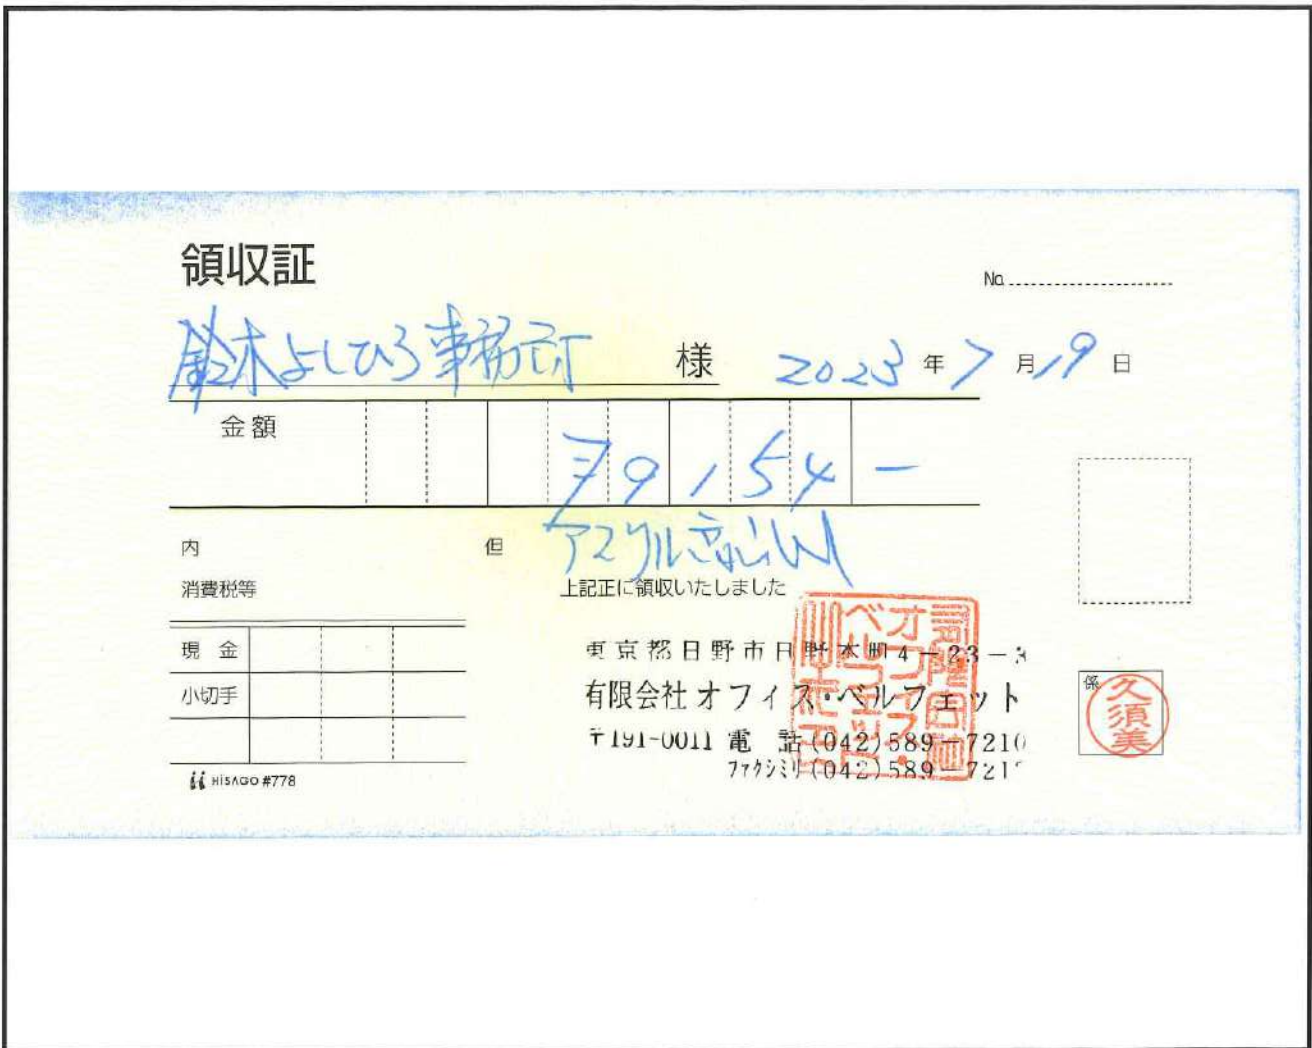 領収証
No.
鈴木よしひろ事務所 様 2023年7月19日
金額
¥9,154-
内
但 アスクル
消費税等
上記正に領収いたしました
現金
小切手
東京都日野市日野本町4-23-
有限会社オフィス・ベルフェット
〒191-0011 電話(042)589-7210
ファクシミリ(042)589-721
係
久須美
HISAGO #778